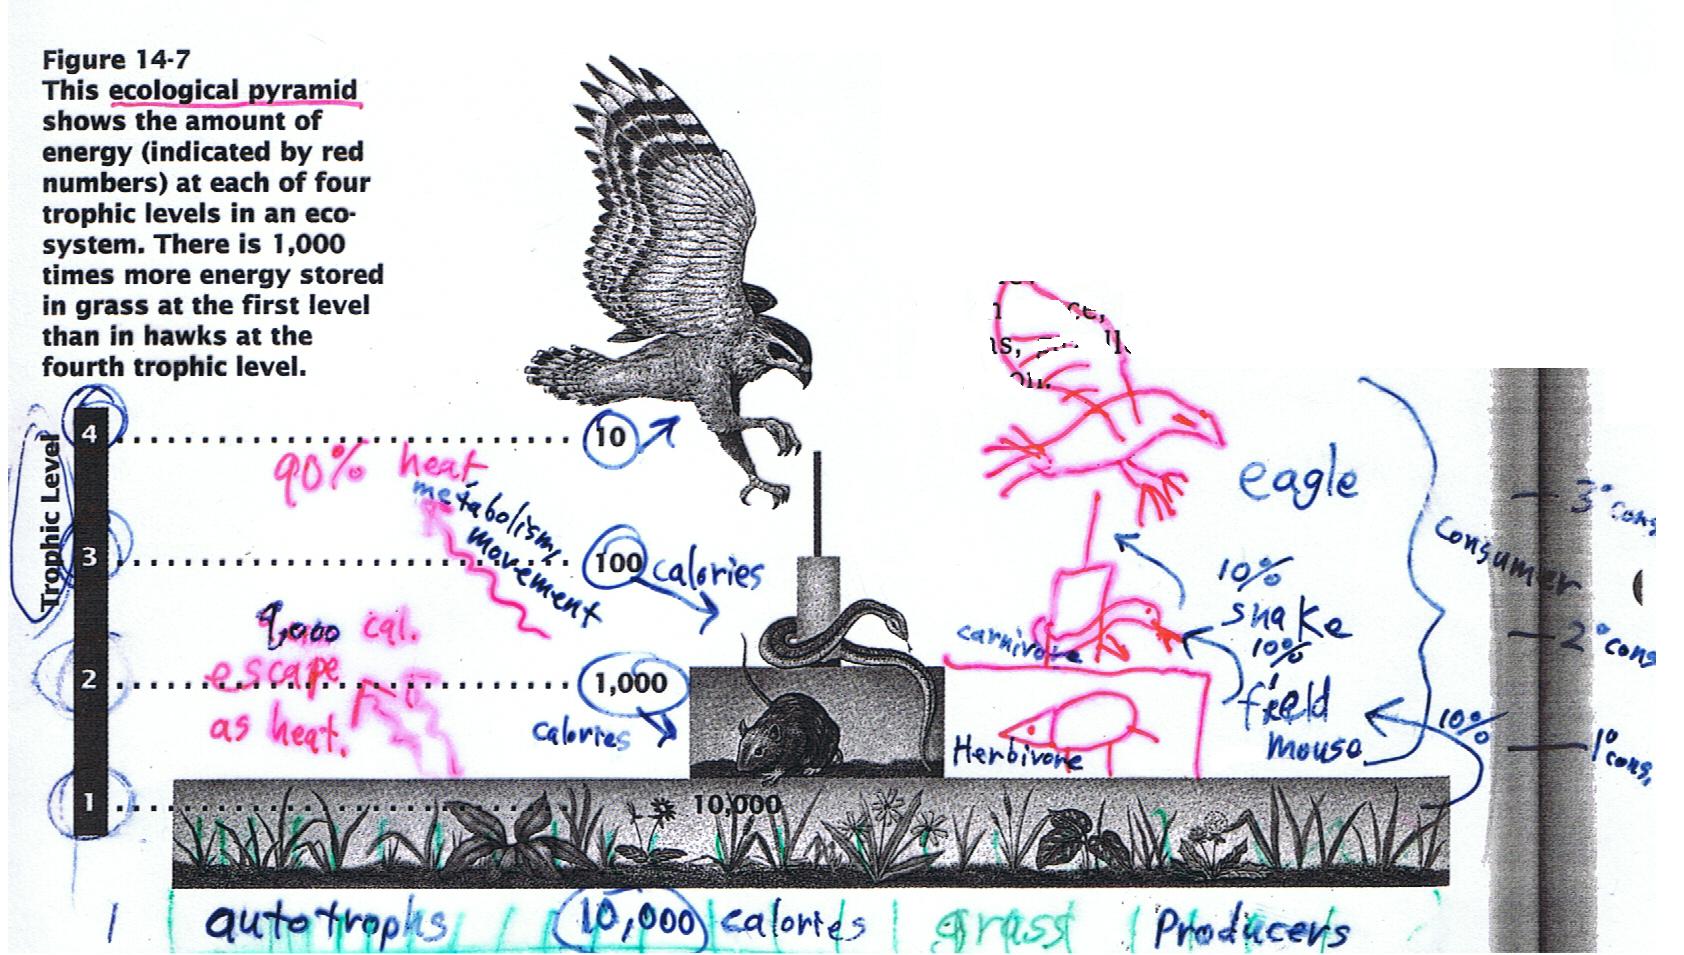 Figure 14-7
This ecological pyramid
shows the amount of
energy (indicated by red
numbers) at each of four
trophic levels in an eco-
system. There is 1,000
times more energy stored
in grass at the first level
than in hawks at the
fourth trophic level.
Trophic Level
4
10
90% heat,
metabolism,
movement
eagle
3° cons
consumer
3
100 calories
10%
snake
10%
carnivore
2° cons
9,000 cal.
escape
as heat.
2
1,000
calories
field
mouse
10%
Herbivore
1° cons,
1
10,000
1 autotrophs 10,000 calories grass Producers